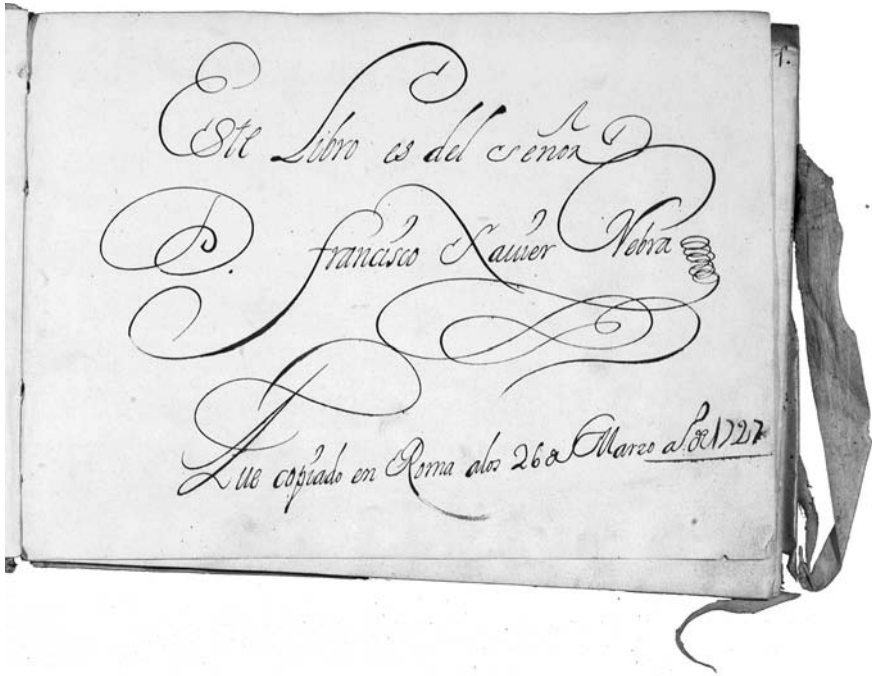 Este Libro es del señor
D. francisco Xavier Nebra
Fue copiado en Roma alos 26 de Marzo de 1727
1.